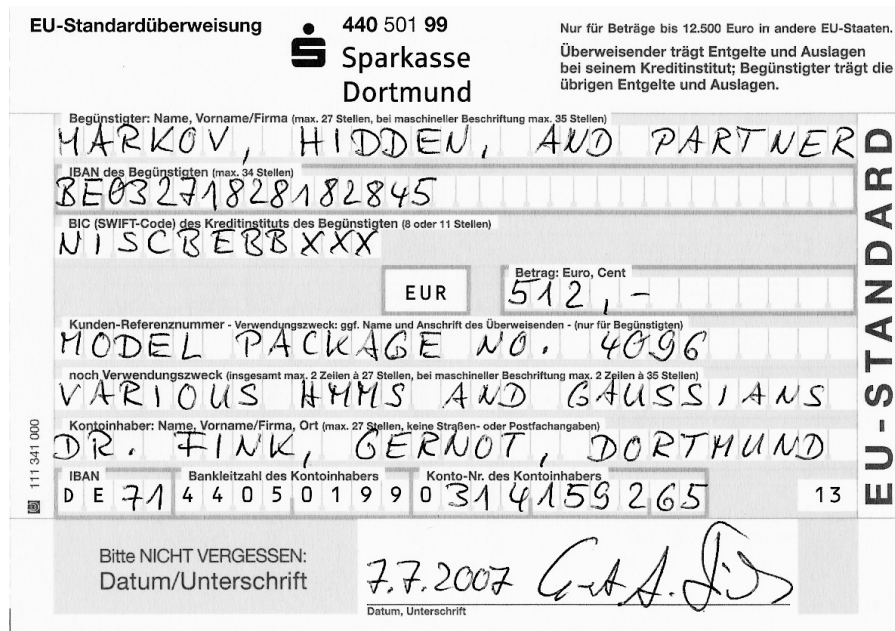 EU-Standardüberweisung
440 501 99
Sparkasse
Dortmund
Nur für Beträge bis 12.500 Euro in andere EU-Staaten.
Überweisender trägt Entgelte und Auslagen
bei seinem Kreditinstitut; Begünstigter trägt die
übrigen Entgelte und Auslagen.
Begünstigter: Name, Vorname/Firma (max. 27 Stellen, bei maschineller Beschriftung max. 35 Stellen)
MARKOV, HIDDEN, AND PARTNER
IBAN des Begünstigten (max. 34 Stellen)
BE03271828182845
BIC (SWIFT-Code) des Kreditinstituts des Begünstigten (8 oder 11 Stellen)
NISCBEBBXXX
Betrag: Euro, Cent
EUR 512,-
Kunden-Referenznummer - Verwendungszweck: ggf. Name und Anschrift des Überweisenden - (nur für Begünstigten)
MODEL PACKAGE NO. 4096
noch Verwendungszweck (insgesamt max. 2 Zeilen à 27 Stellen, bei maschineller Beschriftung max. 2 Zeilen à 35 Stellen)
VARIOUS HMMS AND GAUSSIANS
Kontoinhaber: Name, Vorname/Firma, Ort (max. 27 Stellen, keine Straßen- oder Postfachangaben)
DR. FINK, GERNOT, DORTMUND
IBAN Bankleitzahl des Kontoinhabers Konto-Nr. des Kontoinhabers
DE 71 44050199 0314159265 13
Bitte NICHT VERGESSEN:
Datum/Unterschrift
7.7.2007
Datum, Unterschrift
111 341 000
EU-STANDARD